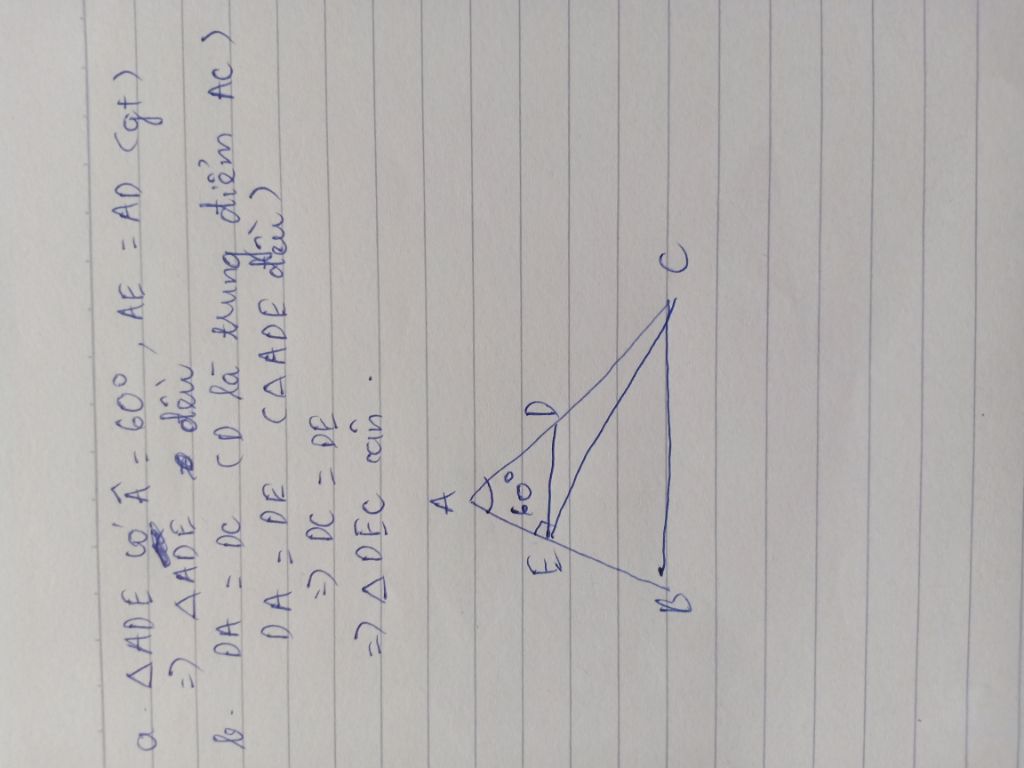 a. △ADE có Â = 60°, AE = AD (gt)
=> △ADE đều
b. DA = DC (D là trung điểm AC)
DA = DE (△ADE đều)
=> DC = DE
=> △DEC cân.
A
60°
E
D
B
C